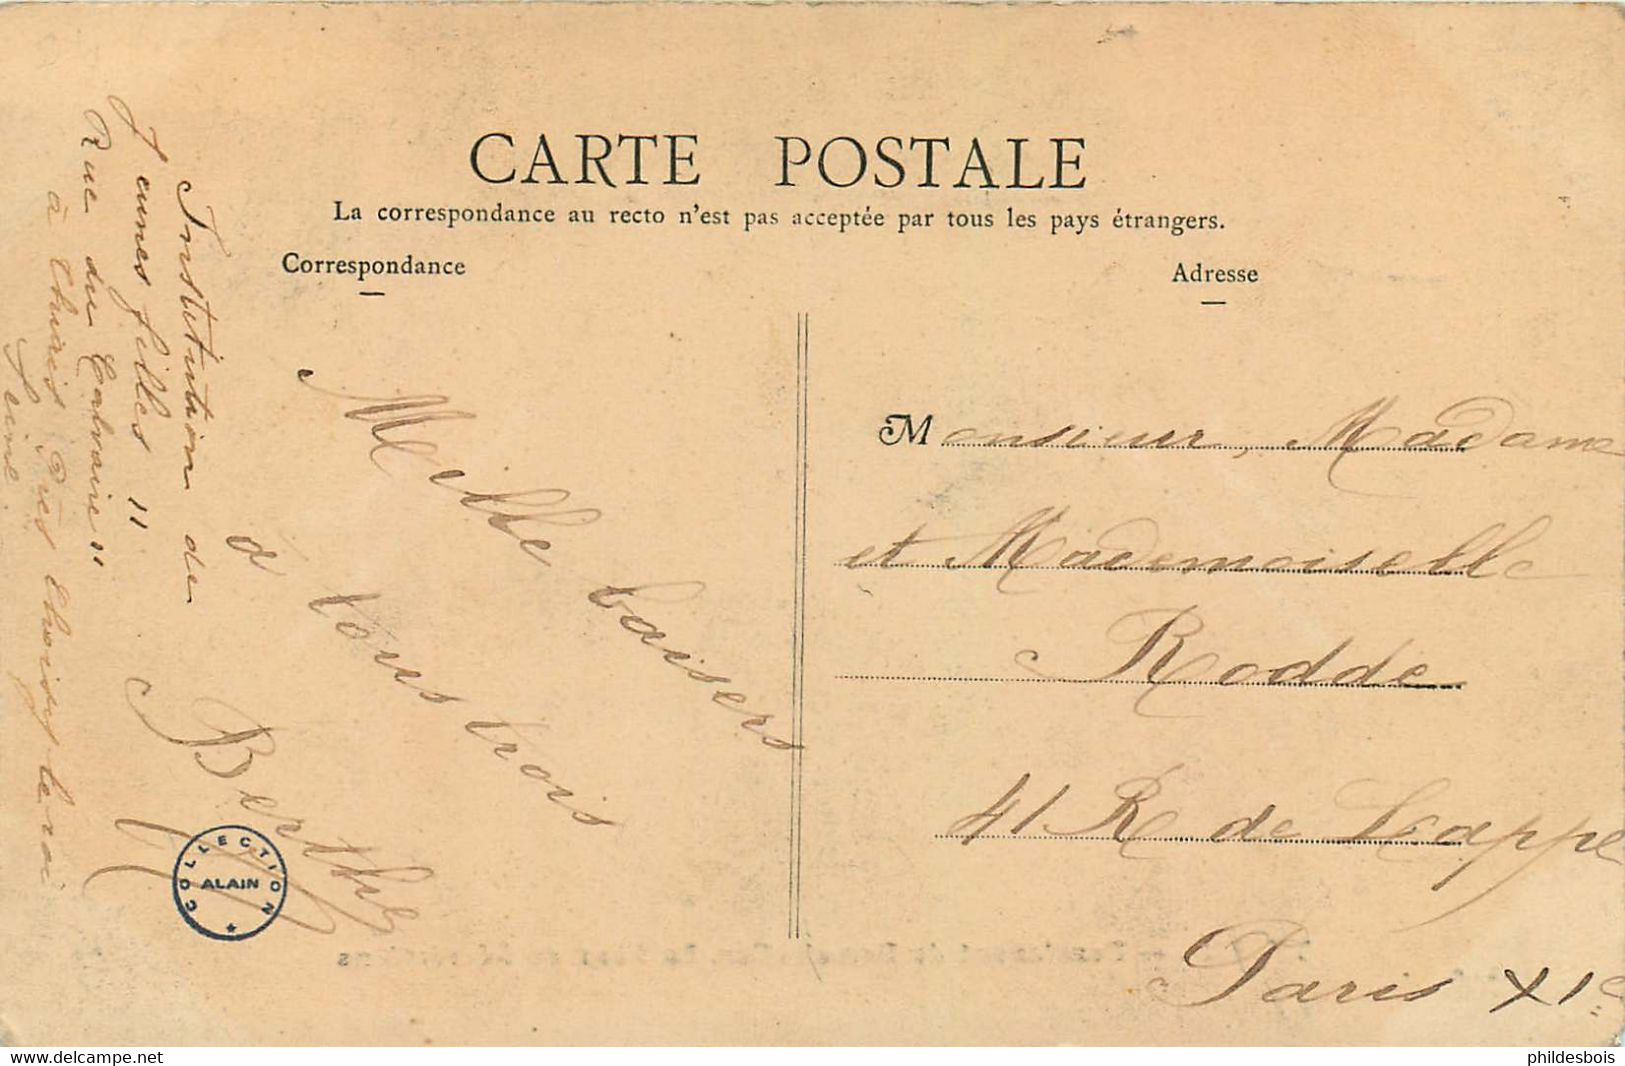 CARTE POSTALE
La correspondance au recto n'est pas acceptée par tous les pays étrangers.
Correspondance
Adresse
Institution de
Jeunes filles "
Rue du Calvaire "
à Thiais près Choisy le roi
Seine.
Mille baisers
à tous trois
Berthe
Monsieur, Madame
et Mademoiselle
Rodde
41 R de Lappe
Paris XIe
COLLECTION
ALAIN
www.delcampe.net
phildesbois